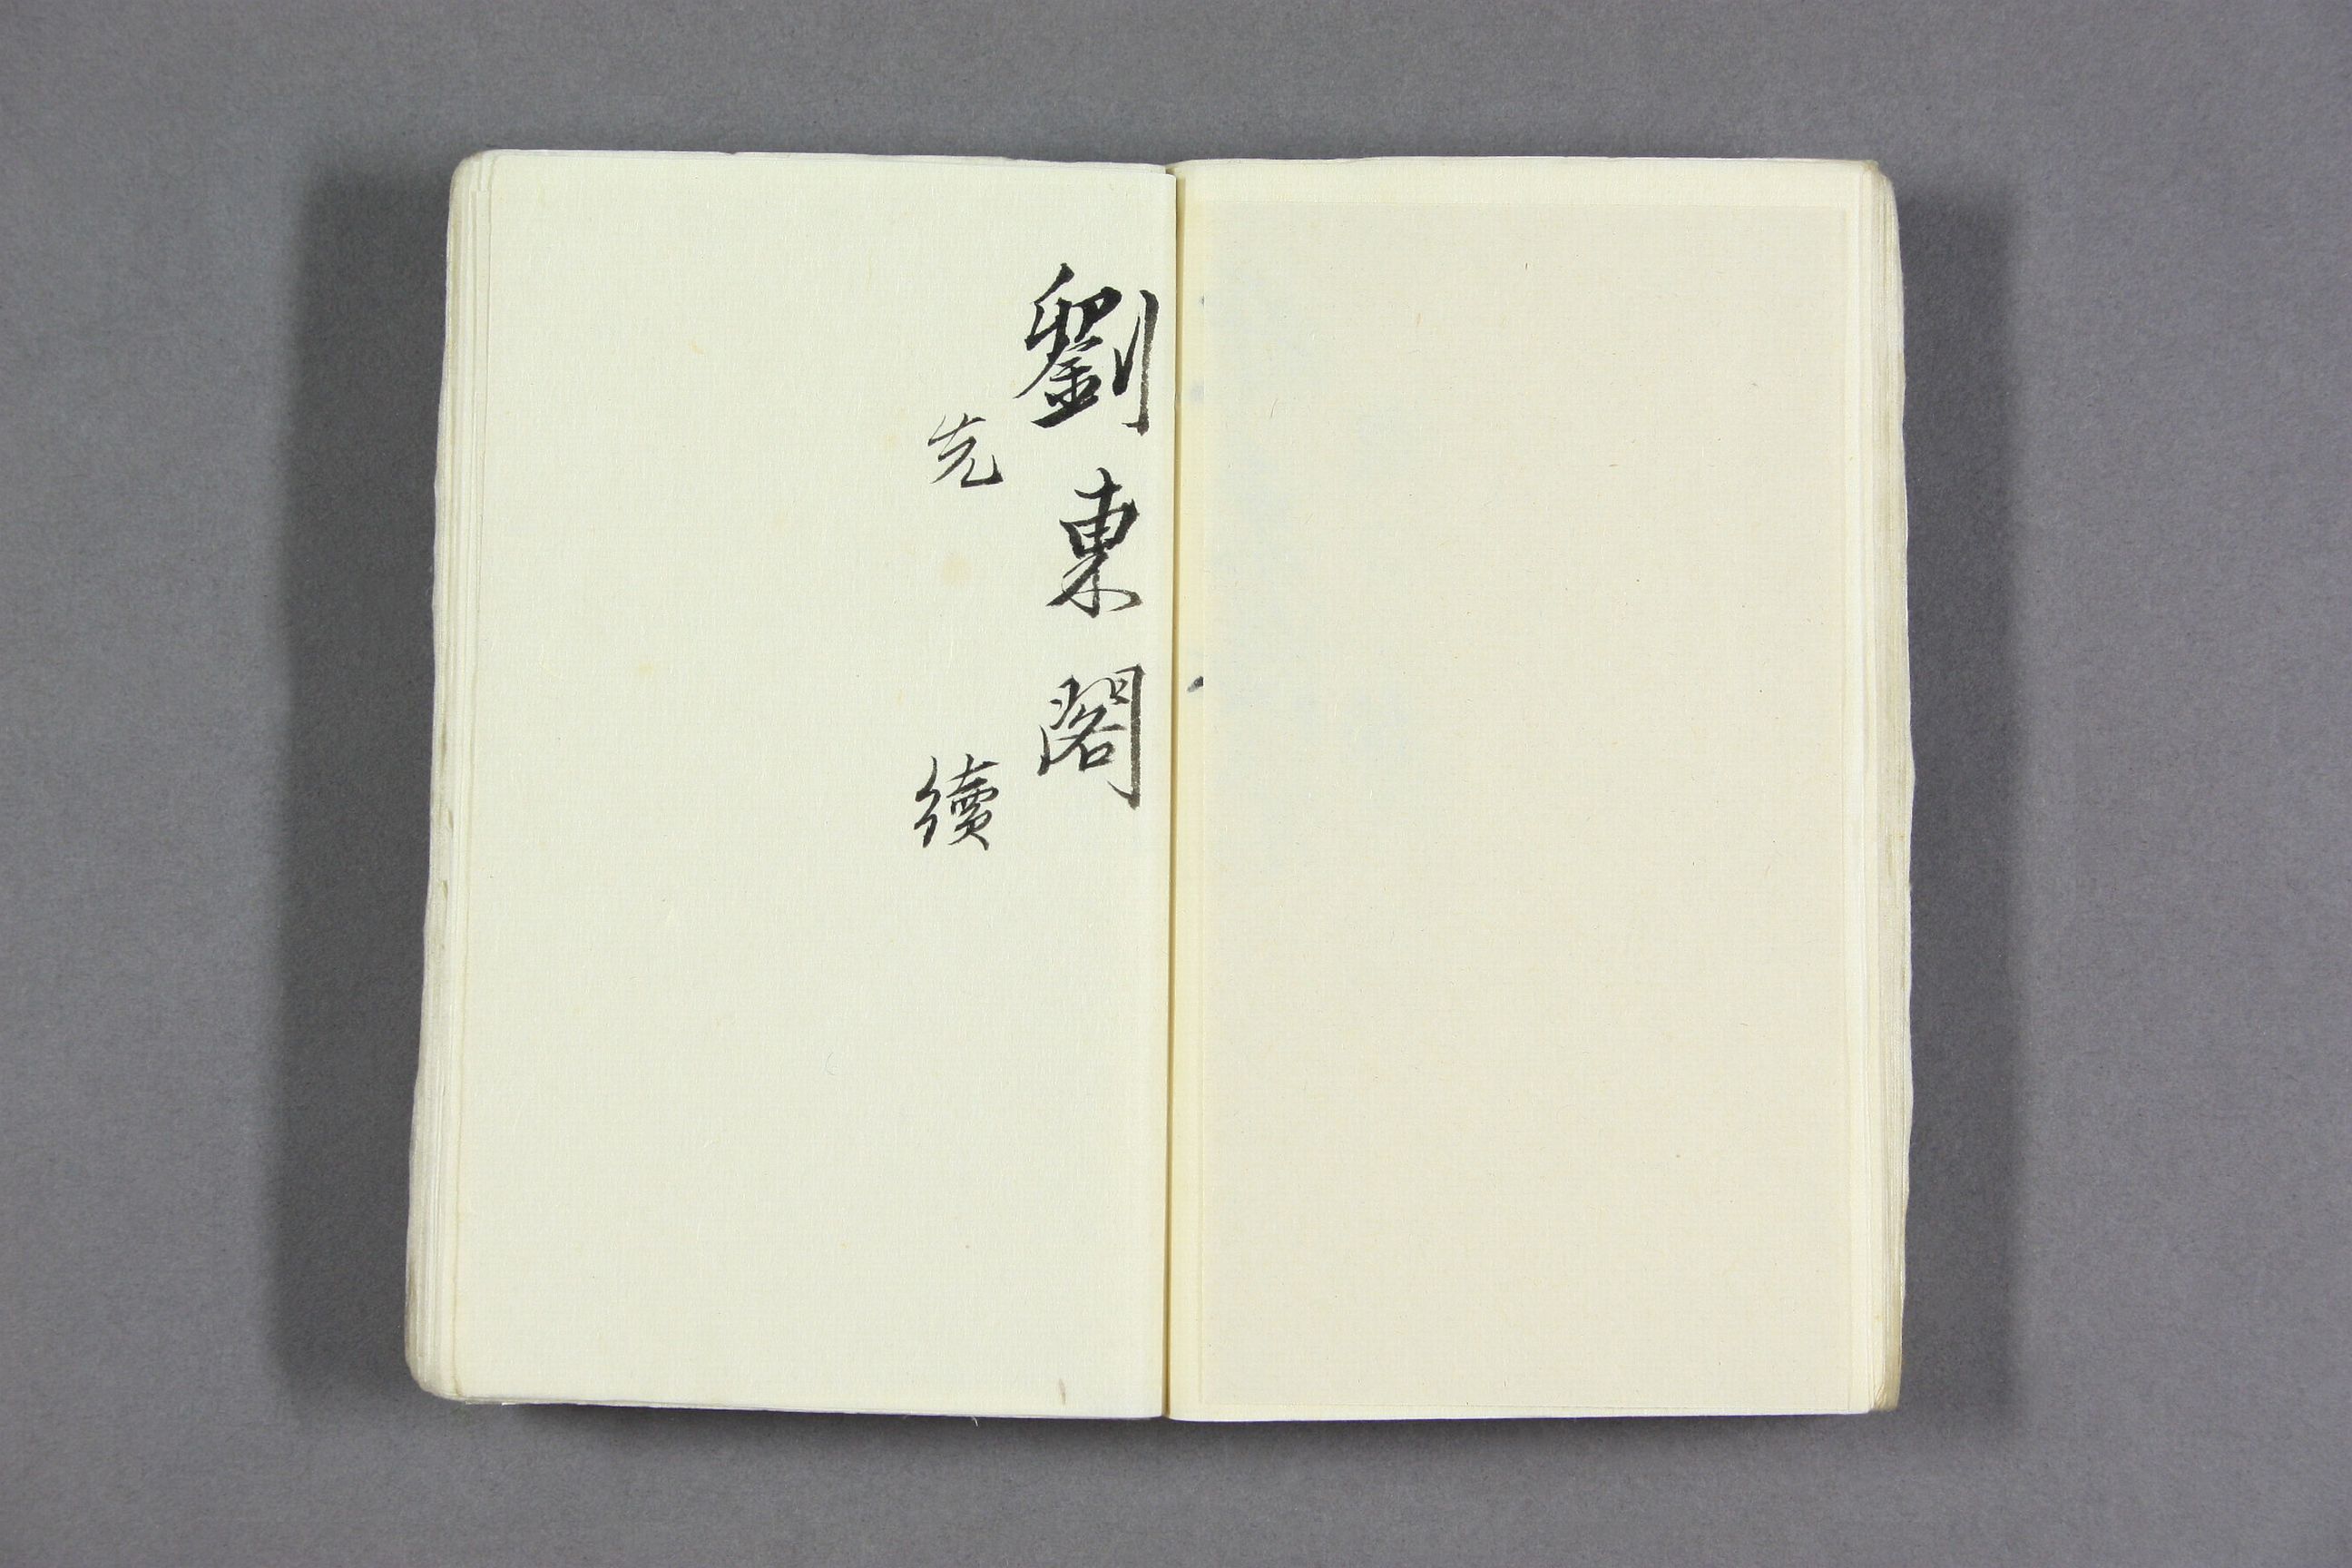 劉東閣
先續